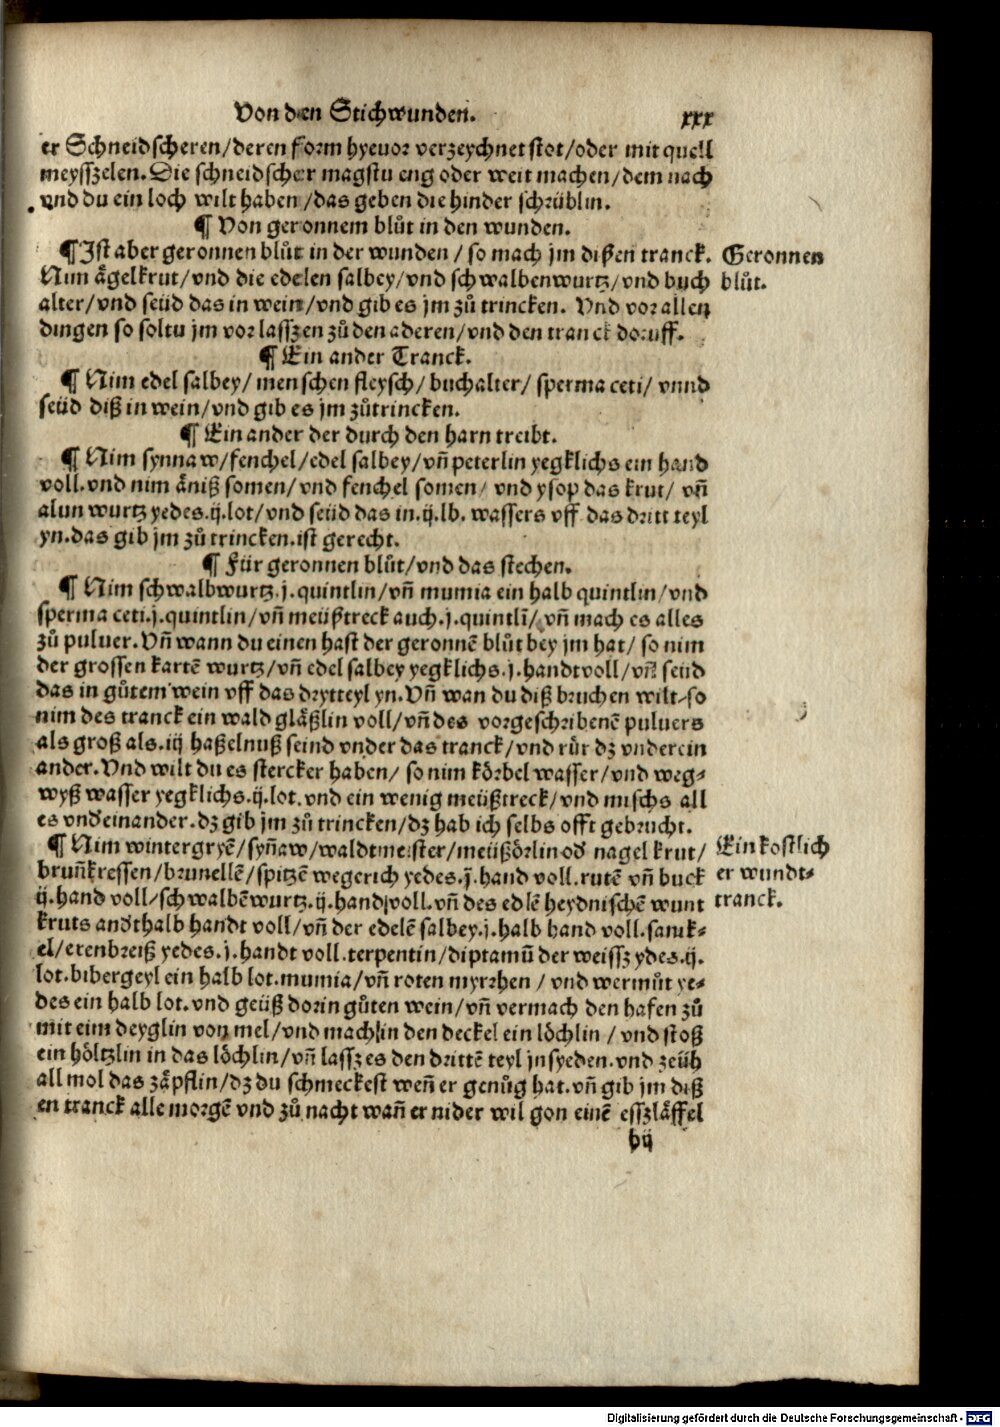 Von den Stichwunden. xxx
er Schneidscheren/deren form hyeuor verzeychnet stot/oder mit quell
meysszelen. Die schneidscher magstu eng oder weit machen/dem nach
vnd du ein loch wilt haben/das geben die hinder schrüblin.
¶ Von geronnem blůt in den wunden.
¶ Ist aber geronnen blůt in der wunden/so mach jm dißen tranck. Geronnen
Nim ågelkrut/vnd die edelen salbey/vnd schwalbenwurtz/vnd buch blůt.
alter/vnd seüd das in wein/vnd gib es jm zů trincken. Vnd vor allen
dingen so soltu jm vor lasszen zů den aderen/vnd den tranck doruff.
¶ Ein ander Tranck.
¶ Nim edel salbey/menschen fleysch/buchalter/sperma ceti/vnnd
seüd diß in wein/vnd gib es jm zůtrincken.
¶ Ein ander der durch den harn treibt.
¶ Nim synnaw/fenchel/edel salbey/vñ peterlin yegklichs ein hand
voll. vnd nim åniß somen/vnd fenchel somen/vnd ysop das krut/vñ
alun wurtz yedes.ij.lot/vnd seüd das in.ij.lb. wassers vff das dritt teyl
yn. das gib jm zů trincken. ist gerecht.
¶ Für geronnen blůt/vnd das stechen.
¶ Nim schwalbwurtz.j.quintlin/vñ mumia ein halb quintlin/vnd
sperma ceti.j.quintlin/vñ meüßtreck auch.j.quintlī/vñ mach es alles
zů puluer. Vñ wann du einen hast der geronnē blůt bey jm hat/so nim
der grossen kartē wurtz/vñ edel salbey yegklichs.j.handtvoll/vñ seüd
das in gůtem wein vff das drytteyl yn. Vñ wan du diß bruchen wilt/so
nim des tranck ein wald glåßlin voll/vñ des vorgeschribenē puluers
als groß als.iij haßelnuß seind vnder das tranck/vnd růr dz vnderein
ander. Vnd wilt du es stercker haben/so nim kőrbel wasser/vnd weg-
wyß wasser yegklichs.ij.lot. vnd ein wenig meüßtreck/vnd mischs all
es vnd einander. dz gib jm zů trincken/dz hab ich selbs offt gebrucht.
¶ Nim wintergryē/syñaw/waldtmeister/meüßőrlin od nagel krut/ Ein kostlich
bruñkressen/brunellē/spitzē wegerich yedes.j.hand voll. rutē vñ buck er wundt-
ij.hand voll/schwalbēwurtz.ij.hand voll. vñ des edlē heydnischē wunt tranck.
kruts andthalb handt voll/vñ der edelē salbey.j.halb hand voll. sanick-
el/erenbreiß yedes.j.handt voll. terpentin/diptamū der weissz ydes.ij.
lot. bibergeyl ein halb lot. mumia/vñ roten myrrhen/vnd wermůt ye-
des ein halb lot. vnd geüß dorin gůten wein/vñ vermach den hafen zů
mit eim deyglin von mel/vnd mach in den deckel ein lőchlin/vnd stoß
ein hőltzlin in das lőchlin/vñ lassz es den drittē teyl jnsyeden. vnd zeüh
all mol das zåpflin/dz du schmeckest weñ er genůg hat. vñ gib jm diß
en tranck alle morgē vnd zů nacht wañ er nider wil gon einē esszlåffel
h ij
Digitalisierung gefördert durch die Deutsche Forschungsgemeinschaft - DFG